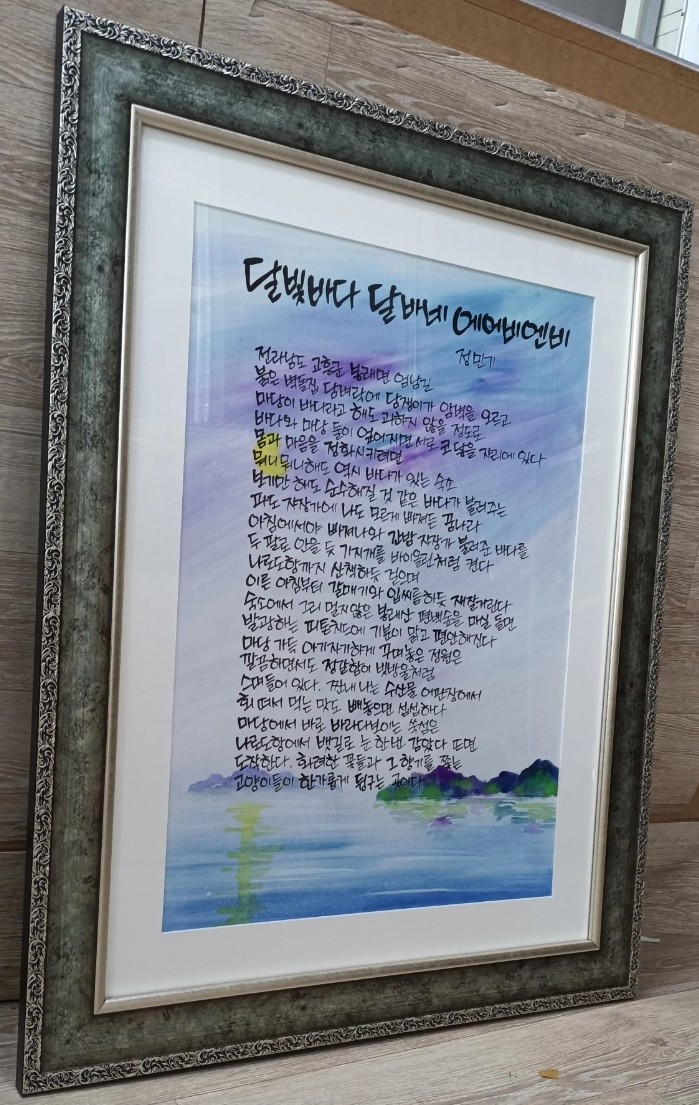 달빛바다 달바네 에어비엔비
정민기
전라남도 고흥군 봉래면 염남길
붉은 벽돌집 담벼락에 담쟁이가 암벽을 오르고
마당이 바다라고 해도 과하지 않을 정도로
바다와 마당 둘이 엎어지면 서로 코 닿을 자리에 있다
몸과 마음을 정화시키려면
뭐니 뭐니해도 역시 바다가 있는 숙소
보기만 해도 순수해질 것 같은 바다가 불러주는
파도 자장가에 나도 모르게 빠져든 꿈나라
아침에서야 빠져나와 간밤 자장가 불러준 바다를
두 팔로 안을 듯 가지개를 바이올린처럼 켠다
나로도항까지 산책하듯 걸으며
이른 아침부터 갈매기와 입씨름하듯 재잘거린다
숙소에서 그리 멀지않은 봉래산 편백숲을 마실 들면
발광하는 피톤치드에 기분이 맑고 편안해진다
마당 가득 아기자기하게 꾸며놓은 정원은
깔끔하면서도 정갈함이 빗방울처럼
스며들어 있다. 짠내 나는 수산물 어판장에서
회 떠서 먹는 맛도 빼놓으면 섭섭하다
마당에서 바로 바라다보이는 쑥섬은
나로도항에서 뱃길로 눈 한번 감았다 뜨면
도착한다. 화려한 꽃들과 그 향기를 쫓는
고양이들이 한가롭게 뒹구는 곳이다